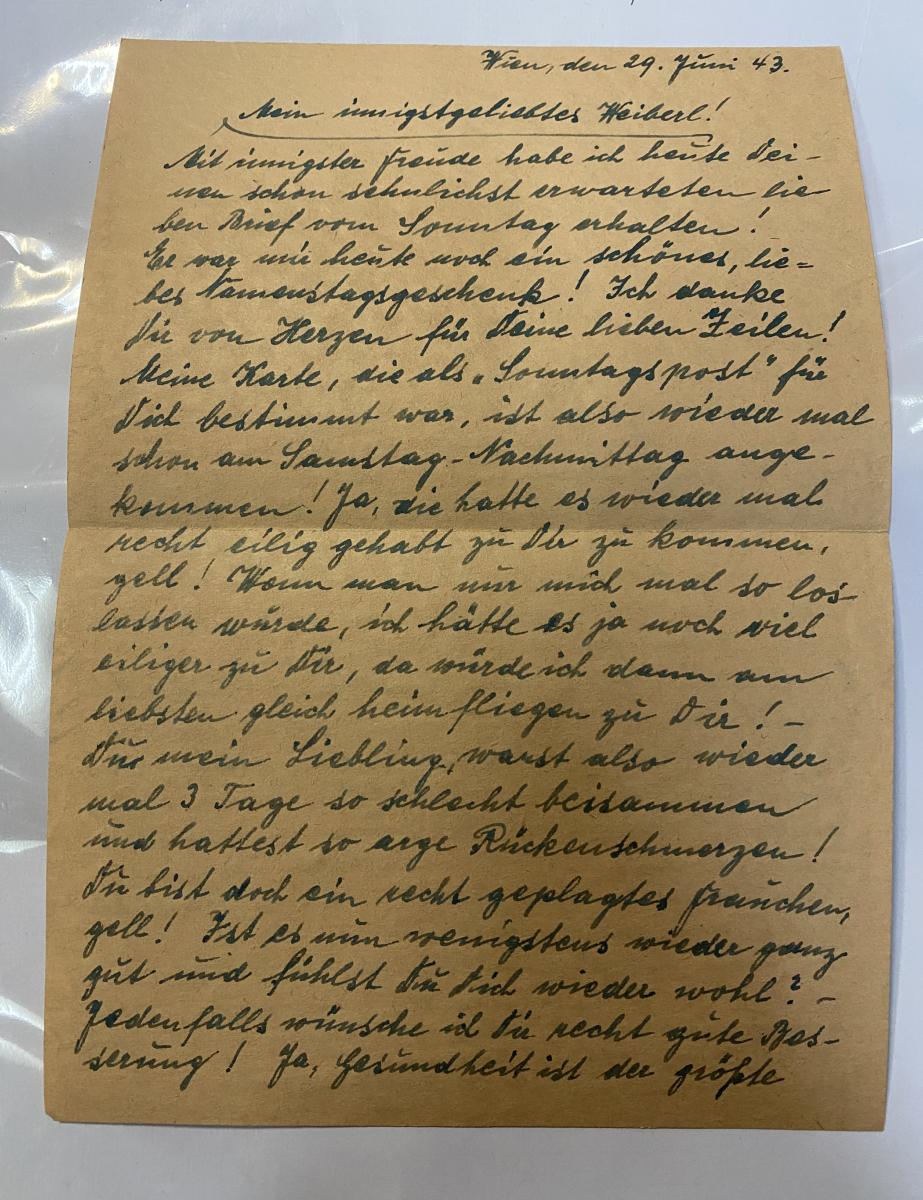 Wien, den 29. Juni 43.
Mein innigstgeliebtes Weiberl!
Mit innigster Freude habe ich heute Dei-
nen schon sehnlichst erwarteten lie
ben Brief vom Sonntag erhalten!
Er war mir heute noch ein schönes, lie=
bes Namenstagsgeschenk! Ich danke
Dir von Herzen für Deine lieben Zeilen!
Meine Karte, die als „Sonntagspost" für
Dich bestimmt war, ist also wieder mal
schon am Samstag-Nachmittag ange-
kommen! Ja, die hatte es wieder mal
recht eilig gehabt zu Dir zu kommen,
gell! Wenn man nur mich mal so los-
lassen würde, ich hätte es ja noch viel
eiliger zu Dir, da würde ich dann am
liebsten gleich heimfliegen zu Dir! -
Du mein Liebling, warst also wieder
mal 3 Tage so schlecht beisammen
und hattest so arge Rückenschmerzen!
Du bist doch ein recht geplagtes Frauchen,
gell! Ist es nun wenigstens wieder ganz
gut und fühlst Du Dich wieder wohl? -
Jedenfalls wünsche ich Dir recht gute Bes-
serung! Ja, Gesundheit ist der größte